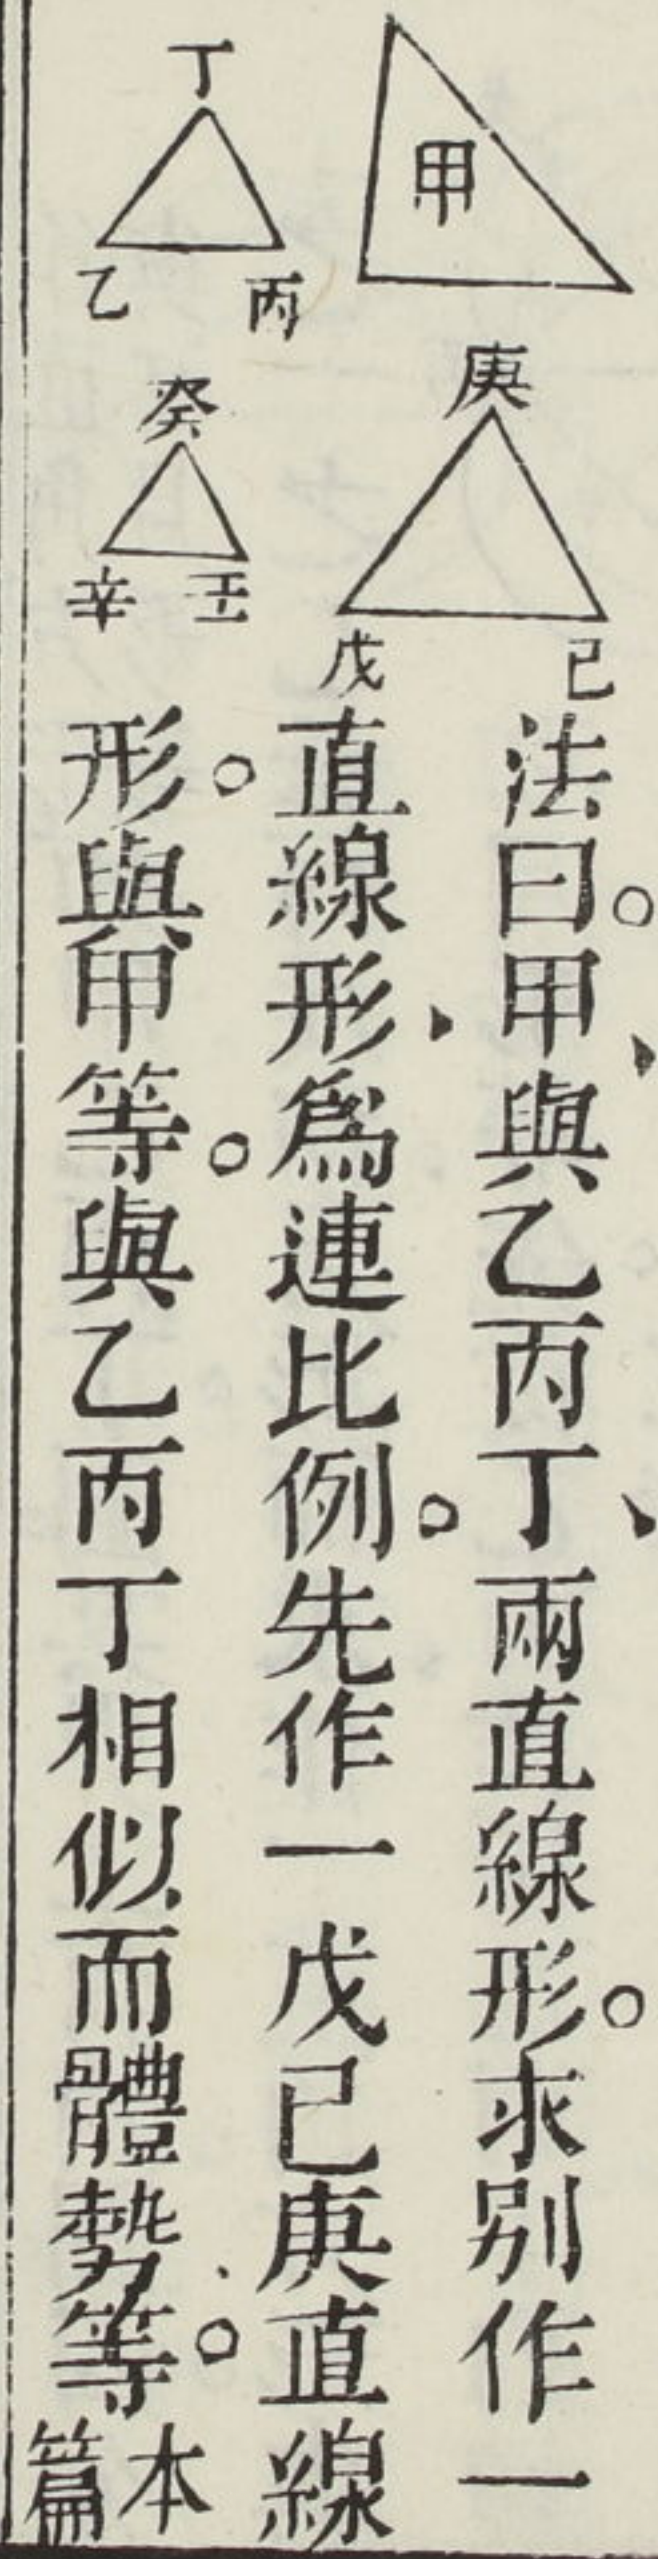 甲
庚
戊
已
丁
乙
丙
癸
辛
壬
法曰。甲、與乙丙丁、兩直線形。求別作一
直線形、爲連比例。先作一戊已庚直線
形。與甲等。與乙丙丁相似而體勢等。本篇